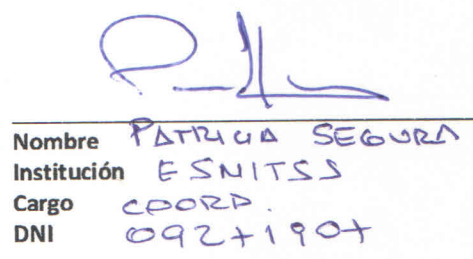 Nombre PATRICIA SEGURA
Institución ESNITSS
Cargo COORD.
DNI 09271907